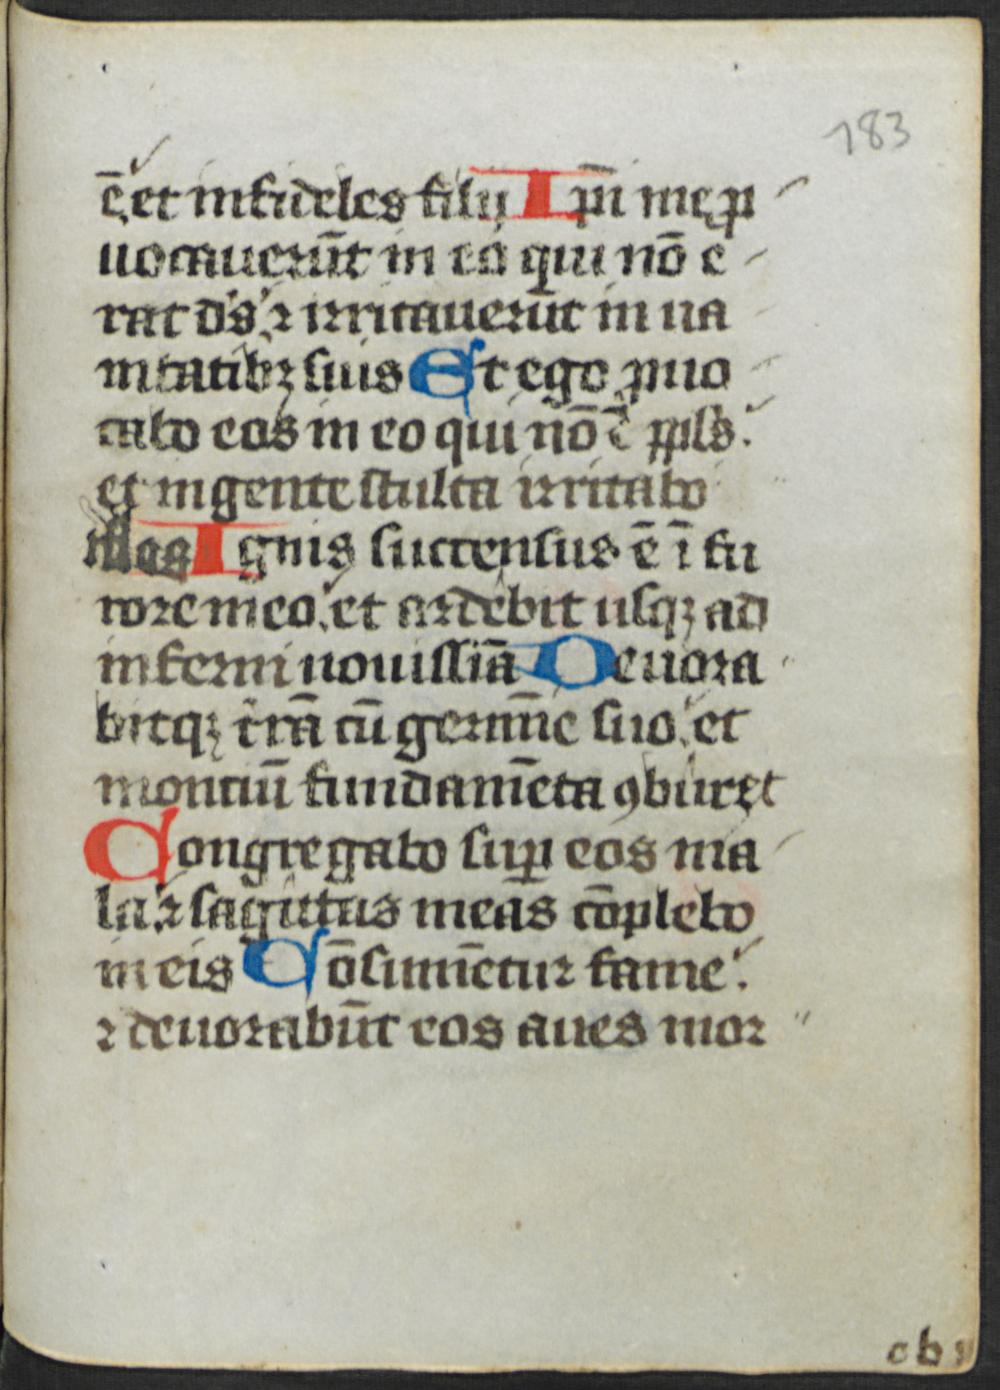 183
ē et infideles filii Ip̄i me ꝓ
uocauerūt in eo qui nō e
rat d's ⁊ irritauerūt in ua
nitatibꝫ suis Et ego ꝓuo
cabo eos in eo qui nō ē ppl's
et in gente stulta irritabo
illos Ignis succensus ē ī fu
rore meo et ardebit usqꝫ ad
inferni nouissīa Deuora
bitqꝫ t̄rā cū germīe suo et
montiū fundamēta ꝯburet
Congregabo suꝑ eos ma
la ⁊ sagittas meas cōplebo
in eis Cōsumētur fame
⁊ deuorabūt eos aues mor